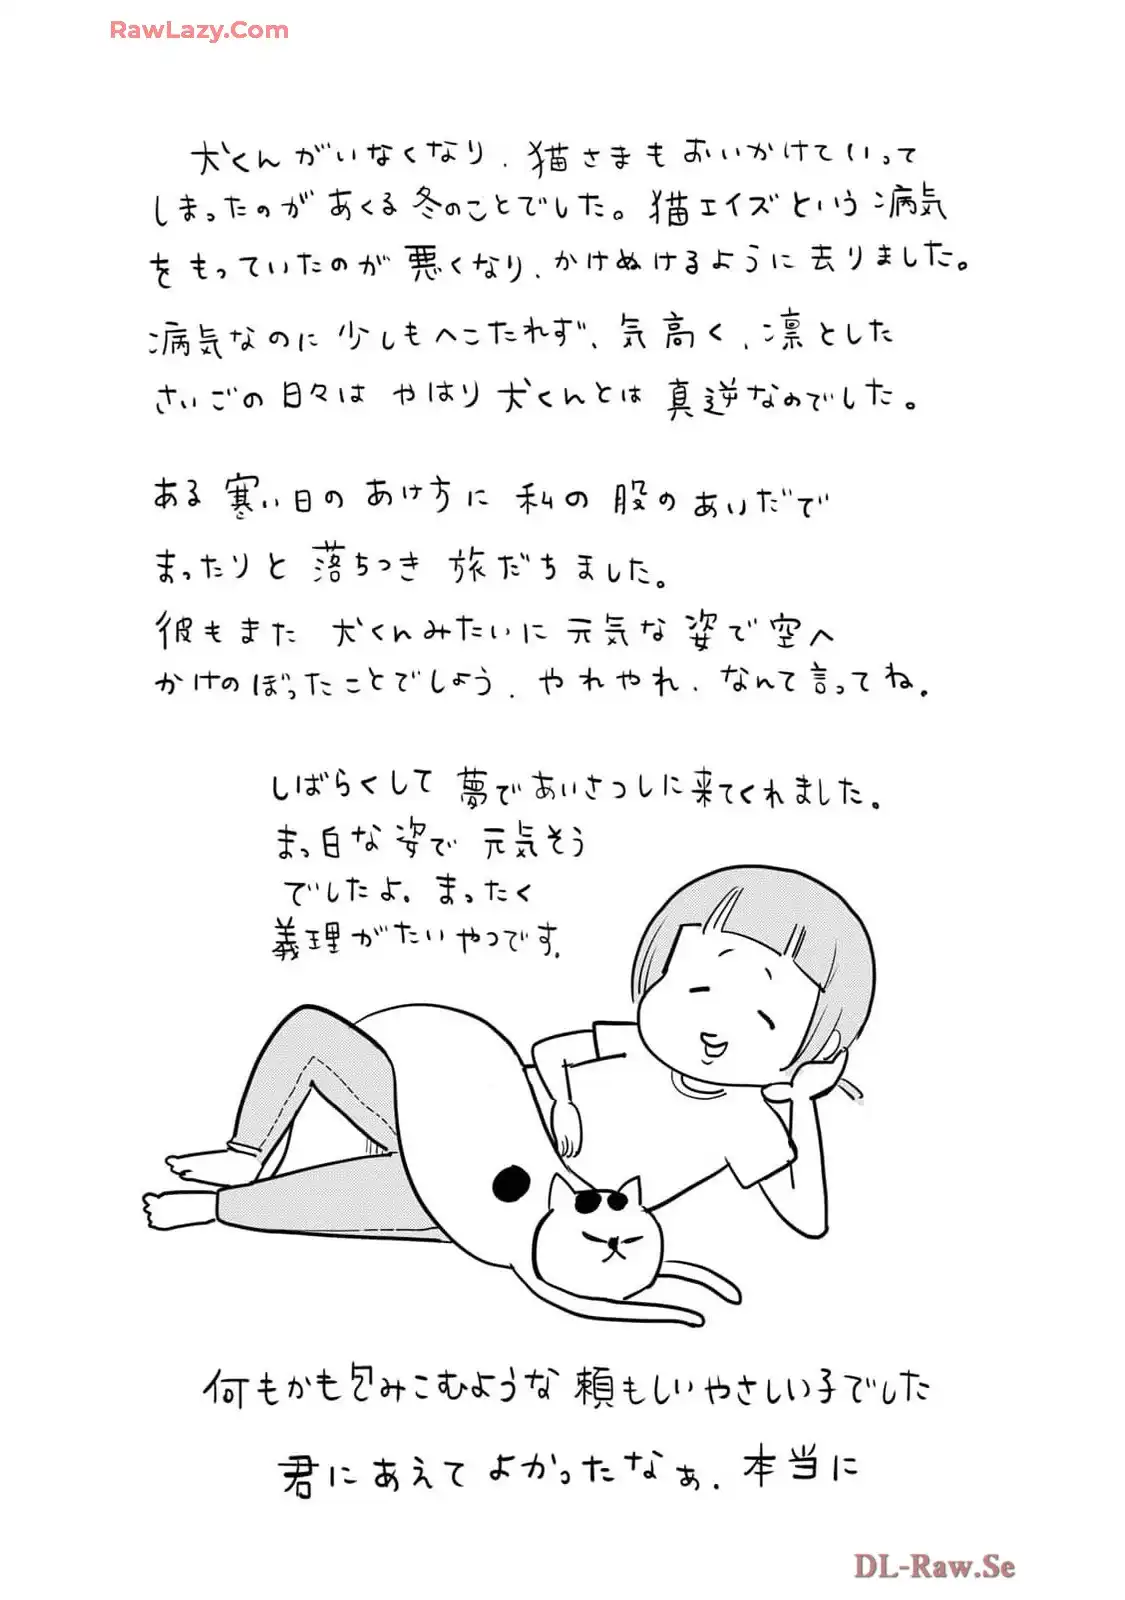 RawLazy.Com
犬くんがいなくなり、猫さまもおいかけていって
しまったのがあくる冬のことでした。猫エイズという病気
をもっていたのが悪くなり、かけぬけるように去りました。
病気なのに少しもへこたれず、気高く、凛とした
さいごの日々はやはり犬くんとは真逆なのでした。
ある寒い日のあけ方に私の股のあいだで
まったりと落ちつき旅だちました。
彼もまた犬くんみたいに元気な姿で空へ
かけのぼったことでしょう、やれやれ、なんて言ってね。
しばらくして夢であいさつしに来てくれました。
まっ白な姿で元気そう
でしたよ。まったく
義理がたいやつです。
何もかも包みこむような頼もしいやさしい子でした
君にあえてよかったなぁ、本当に
DL-Raw.Se